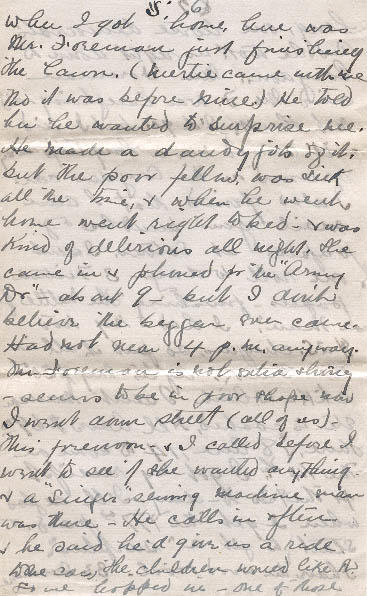 5
when I got home, here was
Mr. Foreman just finishing
the lawn. (Mertie came with me
tho it was before nine.) He told
her he wanted to surprise me.
He made a dandy job of it.
but the poor fellow was sick
all the time, & when he went
home went right to bed - & was
kind of delerious all night. She
came in & phoned for the "Army
Dr" - about 9 - but I don't
believe the beggar ever came.
Had not near 4 p.m. anyway.
Mr. Foreman is not extra strong
- seems to be in poor shape now
I went down street (all of us) -
this forenoon - & I called before I
went to see if she wanted anything.
& a "Singer" sewing machine man
was there - He calls in often
& he said he'd give us a ride
to the car, the children would like it.
So we hopped in - one of those